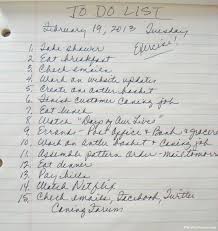 TO DO LIST
February 19, 2013 Tuesday
Exercise!
1. Take shower
2. Eat breakfast
3. Check emails
4. Work on website updates
5. Create an antler basket
6. Finish customer Caning job
7. Eat lunch
8. Watch "Days of Our Lives"
9. Errands - Post Office & Bank & grocery
10. Work on Antler basket & Caning job
11. Assemble pattern order - mail tomorrow
12. Eat dinner
13. Pay bills
14. Watch Netflix
15. Check emails, Facebook, Twitter
Caning Forum